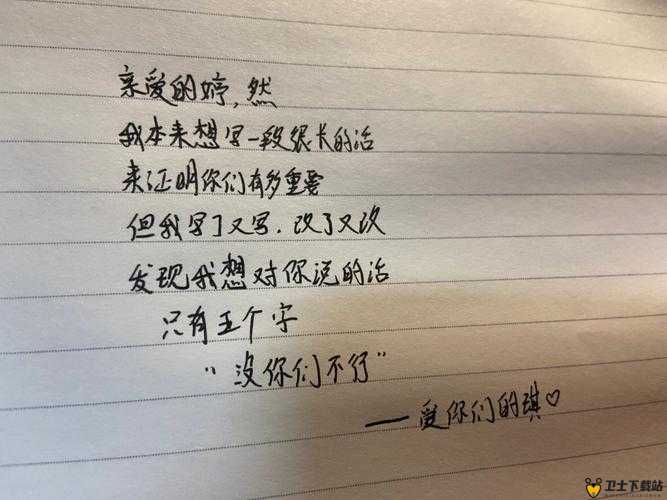 亲爱的婷,然
我本来想写一段很长的话
来证明你们有多重要
但我写了又写,改了又改
发现我想对你说的话
只有五个字
“没你们不行”
——爱你们的琪♡
卫士下载站